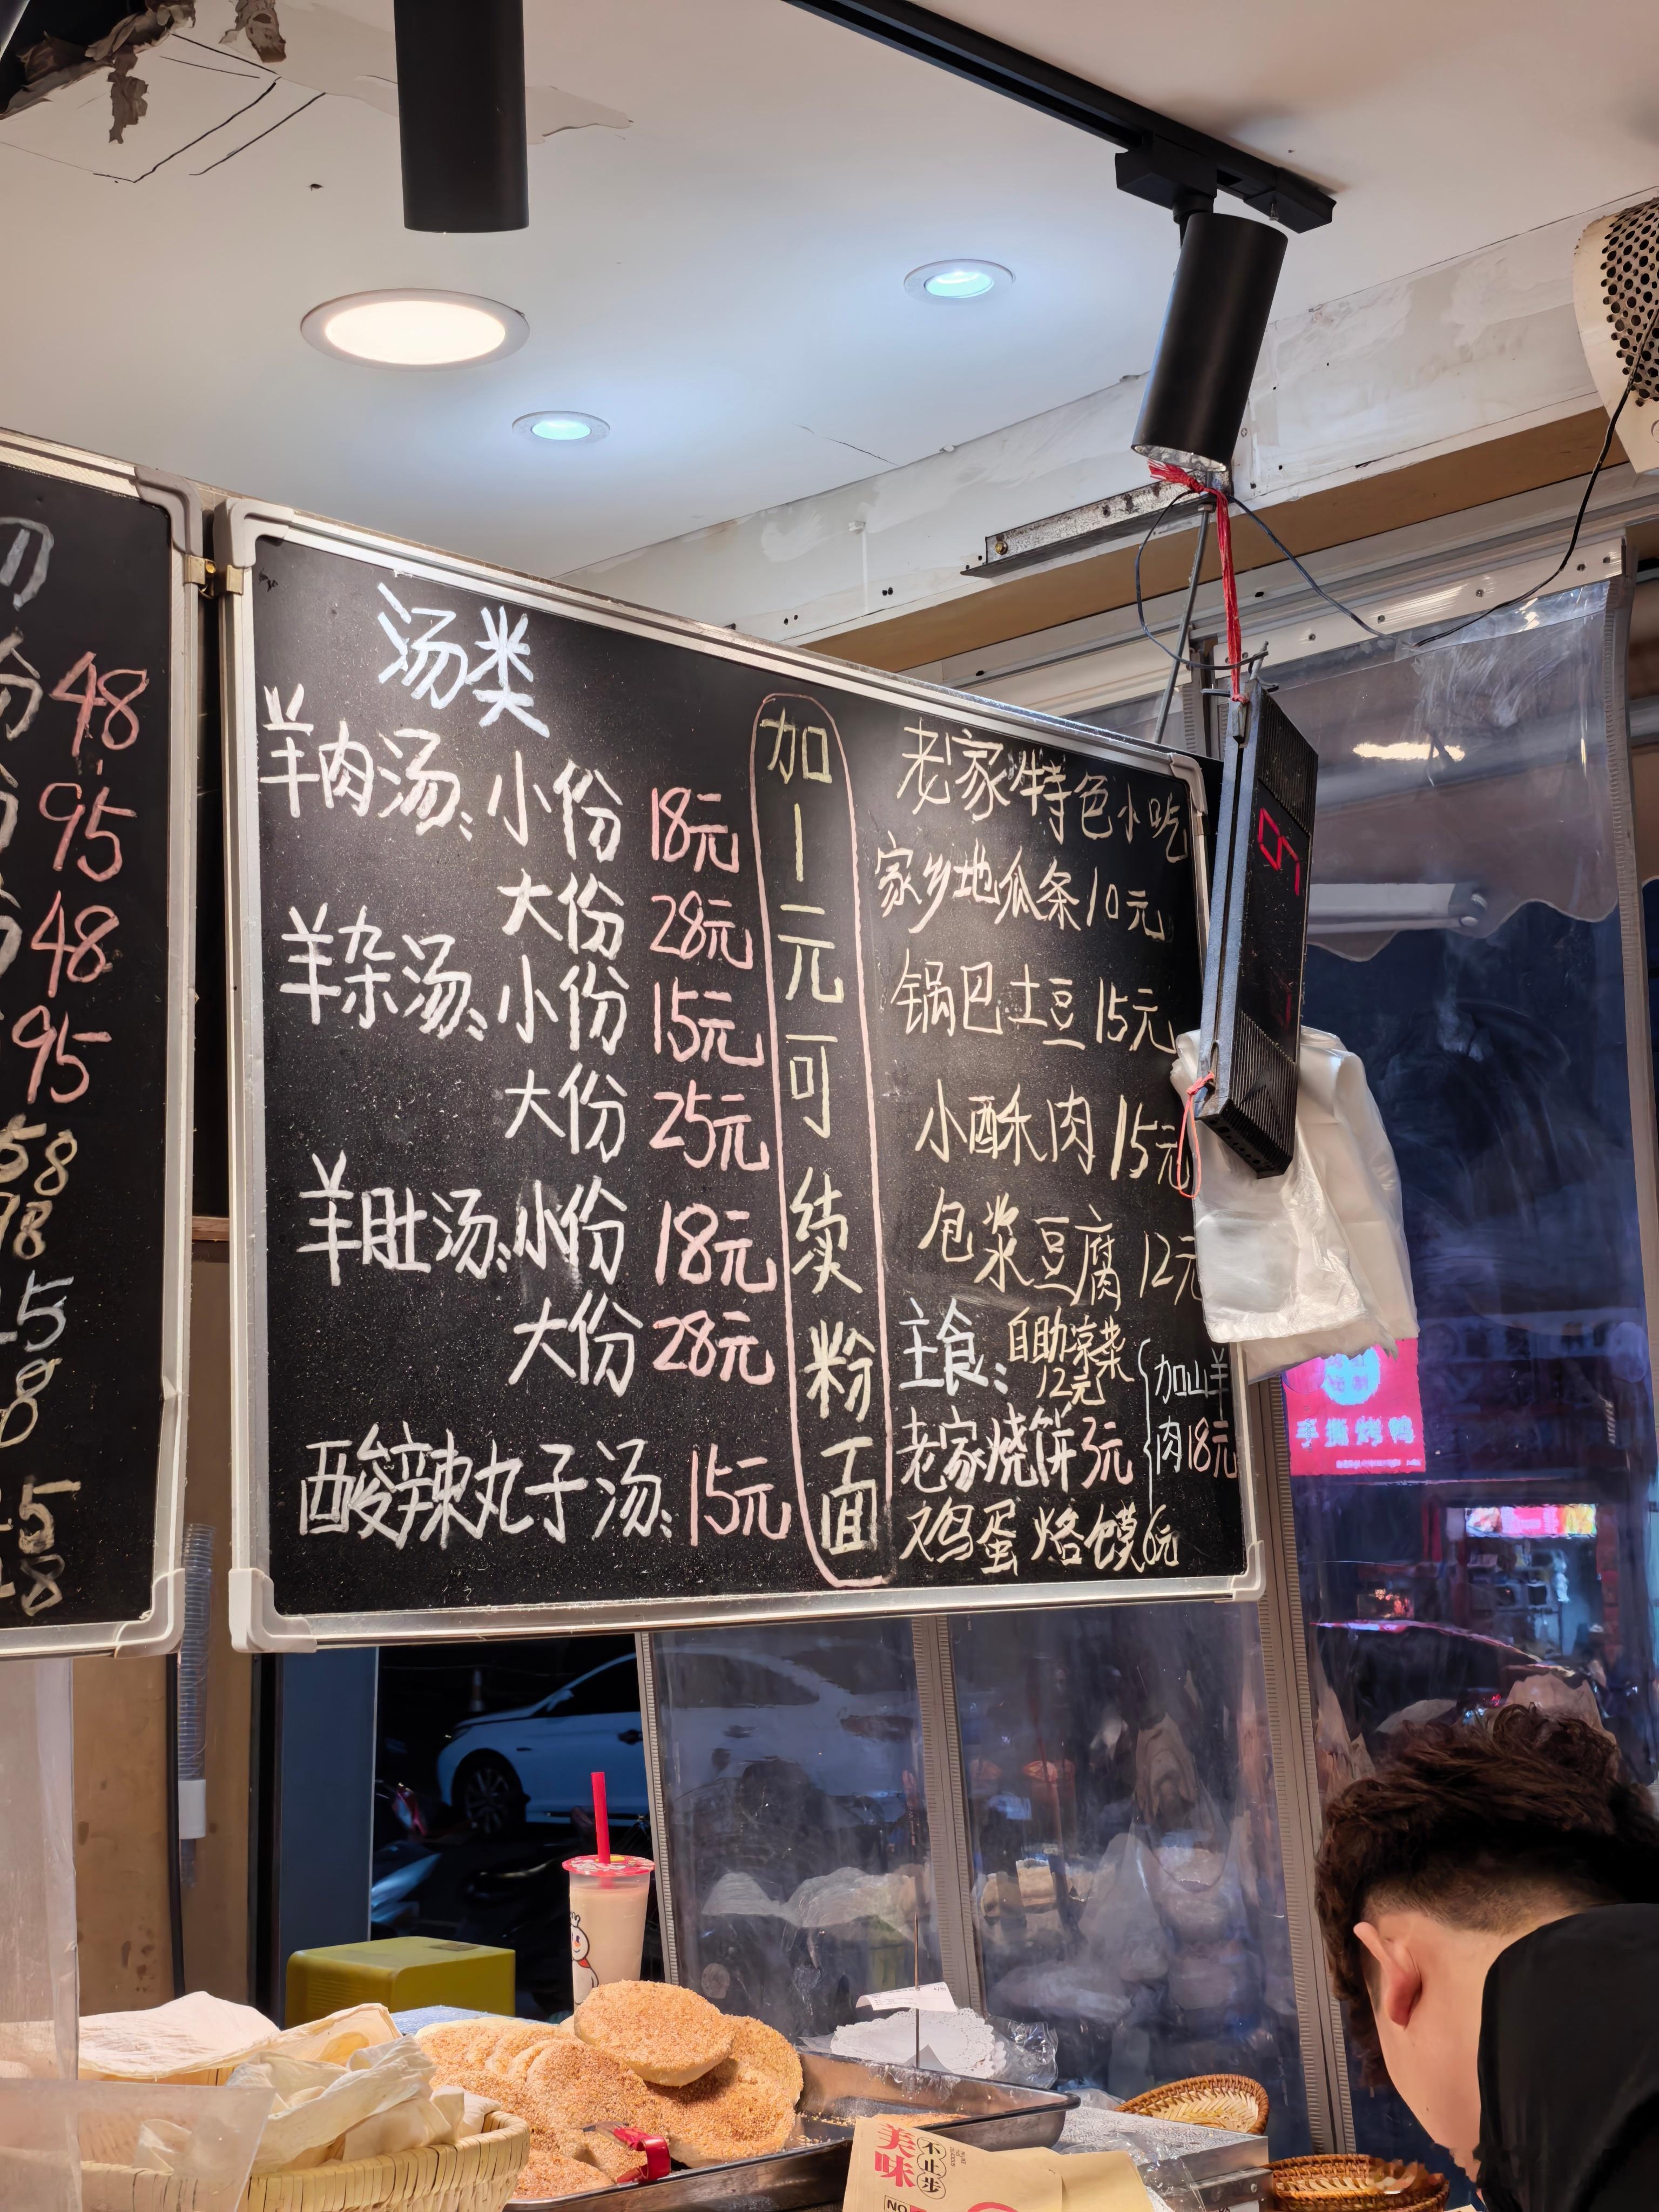 份 48
95
48
95
58
98
汤类
羊肉汤: 小份 18元
大份 28元
羊杂汤: 小份 15元
大份 25元
羊肚汤: 小份 18元
大份 28元
酸辣丸子汤: 15元
加一元可续粉面
老家特色小吃
家乡地瓜条 10元
锅巴土豆 15元
小酥肉 15元
包浆豆腐 12元
主食: 自助凉菜
12元
老家烧饼 3元
鸡蛋烙馍 6元
加山羊
肉18元
手撕烤鸭
美味
不止步
NO